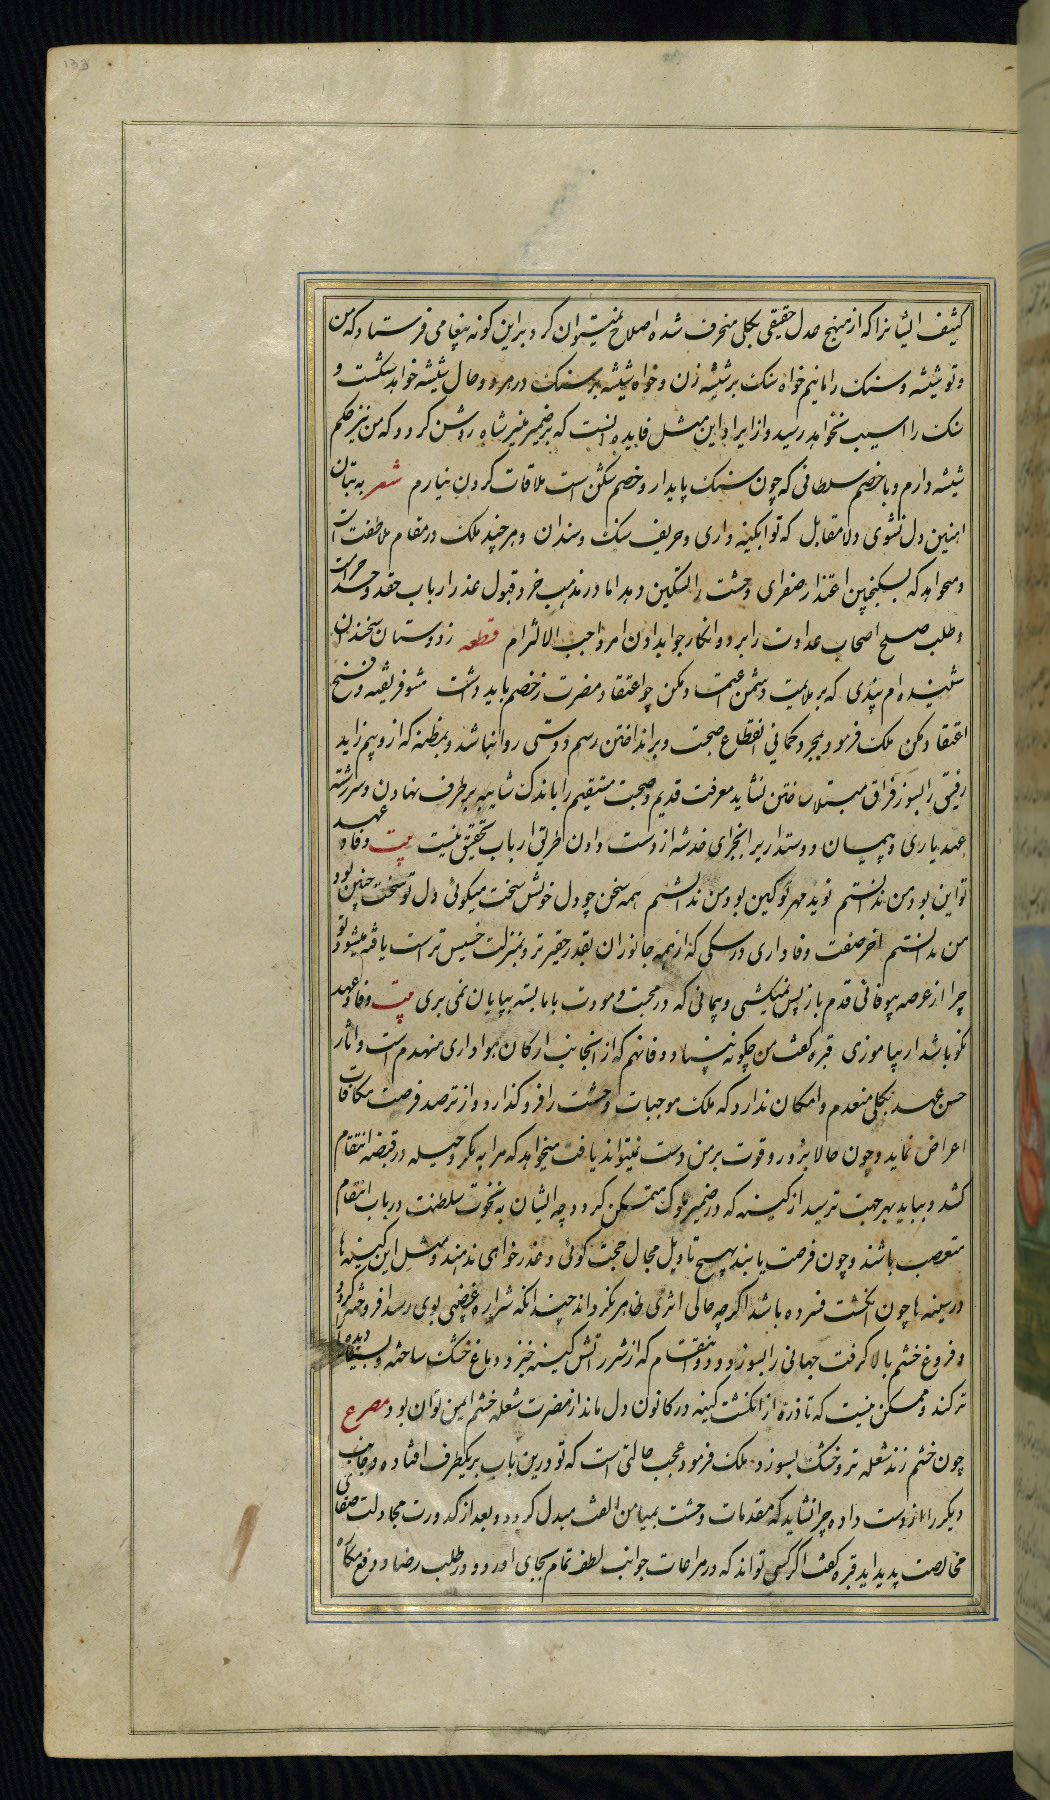 کثیف ایشانرا که از منهج عدل حقیقی بکلی منحرف شده اصلاح نمیتوان کرد براین کونه پیغامی فرستاد که من
و تو شیشه و سنک را مانیم خواه سنک بر شیشه زن و خواه شیشه بر سنک در هر دو حال شیشه خواهد شکست و
سنک را اسیب نخواهد رسید و از ایراد این مثل فایده انست که بر ضمیر منیر شاه روشن کردد که من نیز حکم
شیشه دارم و با خصم سلطانی که چون سنک پایدار و خصم شکن است ملاقات کردن نیارم شعر به بتان
اهنین دل نشوی دلا مقابل که تو ابکینه داری و حریف سنک و سندان و هر چند ملک در مقام ملاطفت است
و میخواهد که بسکنجبین اعتذار صفرای وحشت را تسکین دهد اما در مذهب خرد قبول عذر ارباب حقد و حسد حرامست
و طلب صلح اصحاب عداوت را برد و انکار جواب دادن امر واجب الالتزام قطعه ز دوستان سخندان
شنیده ام پندی که بر ملایمت دشمن اعتماد مکن چو اعتقاد مضرت ز خصم باید داشت مشو فریفته و فسخ
اعتقاد مکن ملک فرمود بمجرد کمانی انقطاع صحبت و برانداختن رسم دوستی روا نباشد و بمظنه که از وهم زاید
رفیق را بسوز فراق مبتلا ساختن نشاید معرفت قدیم و صحبت مستقیم را باندک شایبه بر طرف نهادن و سررشته
عهد یاری و پیمان دوستداری را بجزای خدشه از دست دادن طریق ارباب تحقیق نیست بیت وفا و عهد
تو این بود من ندانستم نوید مهر تو کین بود من ندانستم همه سخن چو دل خویش سخت میکوئی دل تو سخت چنین بود
من ندانستم اخر صفت وفاداری در سکی که از همه جانوران بقدر حقیرتر و بمنزلت خسیس تر است یافته میشود تو
چرا از عرصه بیوفائی قدم باز پس نمیکشی و پیمانی که در محبت و مودت با ما بسته بپایان نمی بری بیت وفا و عهد
نکو باشد ار بیاموزی قبره کفت من چکونه بنیاد وفا نهم که از انجانب ارکان هواداری منهدم است و اثار
حسن عهد بکلی منعدم و امکان ندارد که ملک موجبات وحشت را فرو کذارد و از ترصد فرصت مکافات
اعراض نماید و چون حالا بزور و قوت بر من دست نمیتواند یافت میخواهد که مرا به مکر و حیله در قبضه انتقام
کشد و بباید بهر جهت ترسید از کینه که در ضمیر ملوک متمکن کردد چه ایشان به نخوت سلطنت در باب انتقام
متعصب باشند و چون فرصت یابند بهیچ تاویل مجال حجت کوئی و عذر خواهی ندهند و مثل این کینه ها
در سینه ها چون انکشت فسرده باشد اکر چه حالی اثری ظاهر نکرداند چندانکه شراره غضبی بوی رسد افروخته کردد
و فروغ خشم بالا کرفت جهانی را بسوزد و دود انتقام که از شرر اتش کینه خیزد دماغ خشک ساخته بسیار دیده را
تر کند و ممکن نیست که تا ذره از انکشت کینه در کانون دل ماند از مضرت شعله خشم ایمن توان بود مصرع
چون خشم زند شعله تر و خشک بسوزد ملک فرمود عجب حالتی است که تو درین باب بر یکطرف افتاده و جانب
دیکر را از دست داده چرا نشاید که مقدمات وحشت بمیامن الفت مبدل کردد و بعد از کدورت مجادلت صفای
مخالصت پدید اید قبره کفت اکر کسی تواند که در مراعات جوانب لطف تمام بجای اورد و در طلب رضا و دفع مکاره